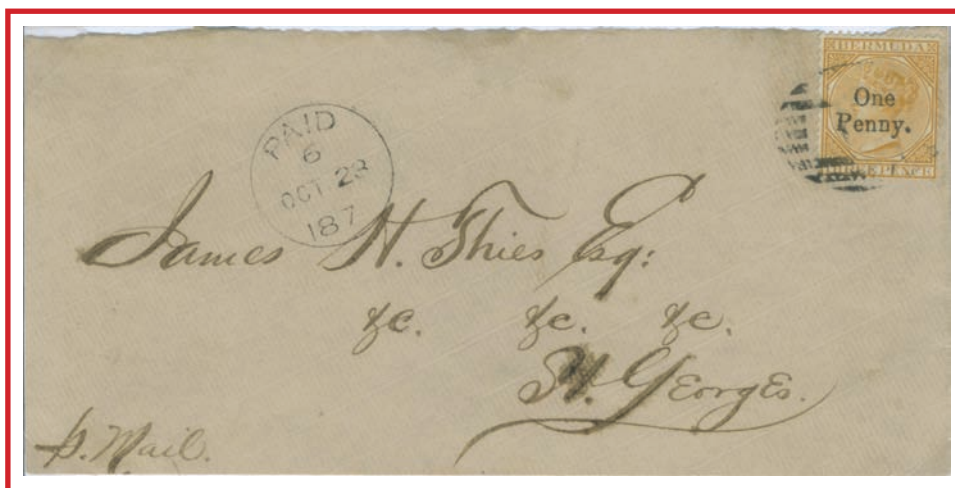 BERMUDA
One
Penny.
THREE PENCE
PAID
6
OCT 23
187
James H. Thies Esq:
&c. &c. &c.
St. Georges.
p. Mail.